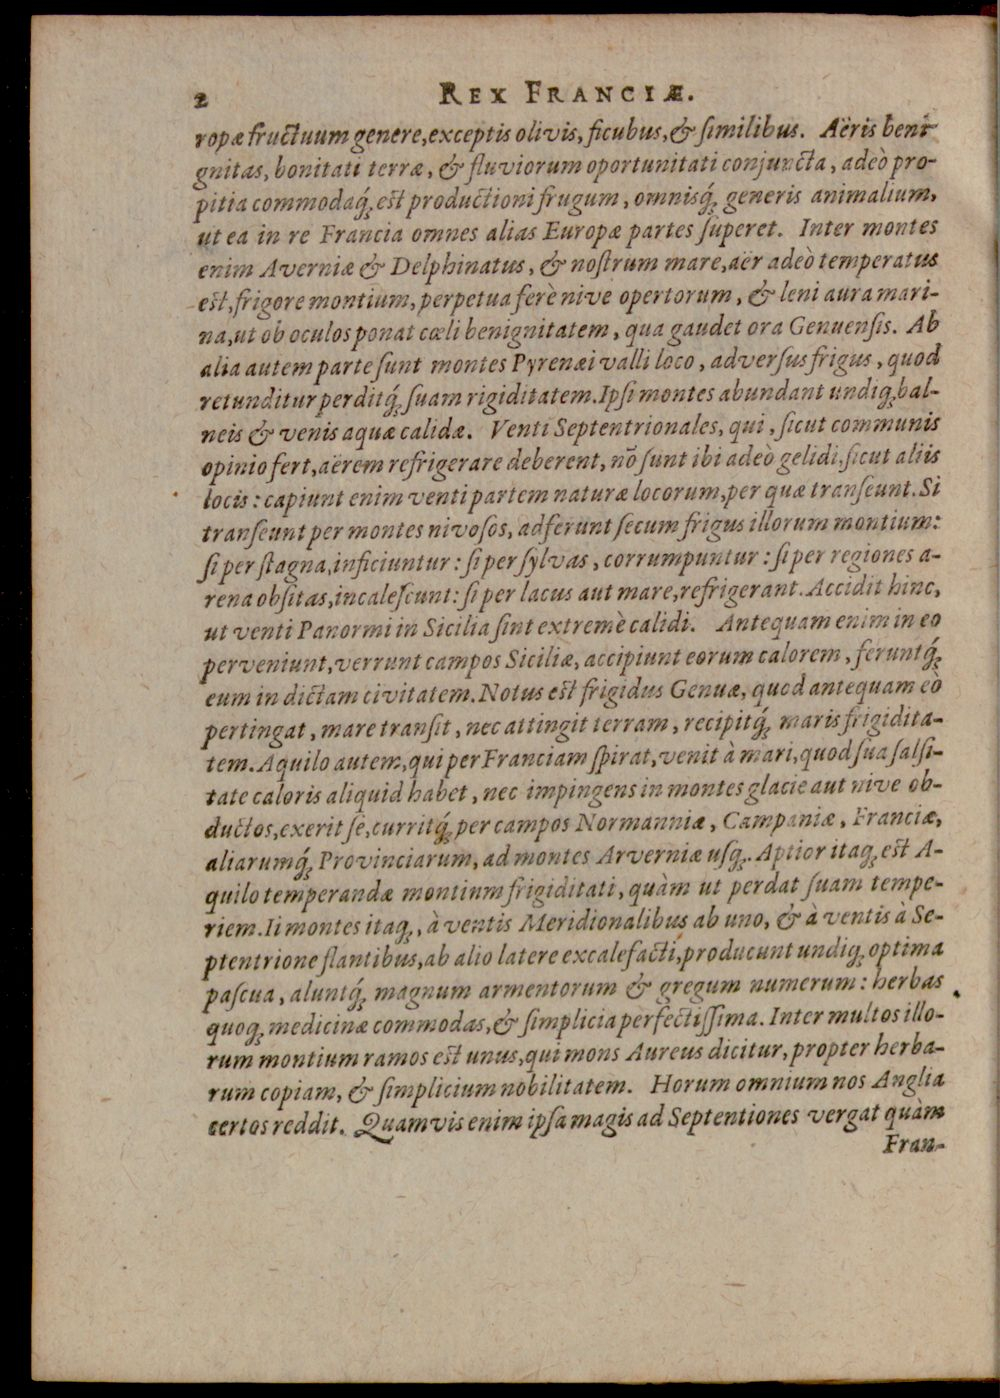 2 REX FRANCIÆ.
ropæ fructuum genere, exceptis olivis, ficubus, & ſimilibus. Aëris beni-
gnitas, bonitati terræ, & fluviorum oportunitati conjuncta, adeò pro-
pitia commodaq́; est productioni frugum, omnisq́; generis animalium,
ut ea in re Francia omnes alias Europæ partes ſuperet. Inter montes
enim Averniæ & Delphinatus, & noſtrum mare, aër adeò temperatus
est, frigore montium, perpetua ferè nive opertorum, & leni aura mari-
na, ut ob oculos ponat cœli benignitatem, qua gaudet ora Genuenſis. Ab
alia autem parte ſunt montes Pyrenæi valli loco, adverſus frigus, quod
retunditur perditq́; ſuam rigiditatem. Ipſi montes abundant undiq; bal-
neis & venis aquæ calidæ. Venti Septentrionales, qui, ſicut communis
opinio fert, aërem refrigerare deberent, nō ſunt ibi adeò gelidi, ſicut aliis
locis: capiunt enim venti partem naturæ locorum, per quæ tranſeunt. Si
tranſeunt per montes nivoſos, adferunt ſecum frigus illorum montium:
ſi per ſtagna, inficiuntur: ſi per ſylvas, corrumpuntur: ſi per regiones a-
rena obſitas, incaleſcunt: ſi per lacus aut mare, refrigerant. Accidit hinc,
ut venti Panormi in Sicilia ſint extremè calidi. Antequam enim in eo
perveniunt, verrunt campos Siciliæ, accipiunt eorum calorem, feruntq́;
eum in dictam civitatem. Notus est frigidus Genuæ, quod antequam eò
pertingat, mare tranſit, nec attingit terram, recipitq́; maris frigidita-
tem. Aquilo autem, qui per Franciam ſpirat, venit à mari, quod ſua ſalſi-
tate caloris aliquid habet, nec impingens in montes glacie aut nive ob-
ductos, exerit ſe, curritq́; per campos Normanniæ, Campaniæ, Franciæ,
aliarumq́; Provinciarum, ad montes Arverniæ uſq;. Aptior itaq; est A-
quilo temperandæ montium frigiditati, quàm ut perdat ſuam tempe-
riem. Ii montes itaq;, à ventis Meridionalibus ab uno, & à ventis à Se-
ptentrione flantibus, ab alio latere excalefacti, producunt undiq; optima
paſcua, aluntq́; magnum armentorum & gregum numerum: herbas
quoq; medicinæ commodas, & ſimplicia perfectiſſima. Inter multos illo-
rum montium ramos est unus, qui mons Aureus dicitur, propter herba-
rum copiam, & ſimplicium nobilitatem. Horum omnium nos Anglia
certos reddit. Quamvis enim ipſa magis ad Septentiones vergat quàm
Fran-